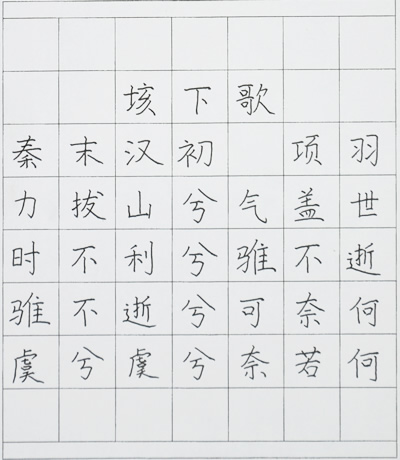 垓下歌
秦末汉初 项羽
力拔山兮气盖世
时不利兮骓不逝
骓不逝兮可奈何
虞兮虞兮奈若何